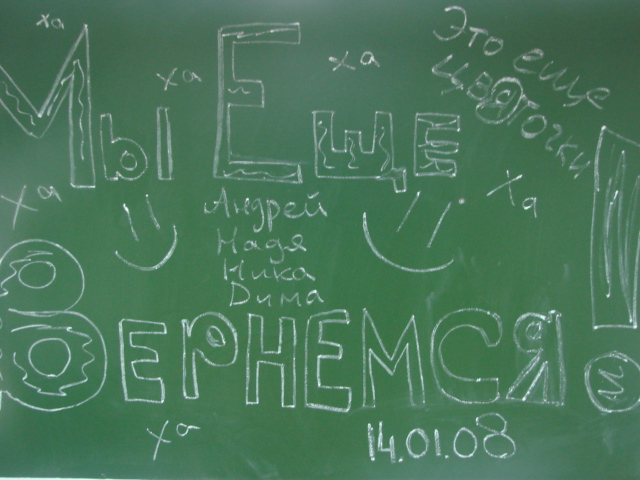 ха
Мы Еще
ха
ха
Это еще
цветочки
ха
Ха
Андрей
Надя
Ника
Дима
Вернемся!
ха
14.01.08